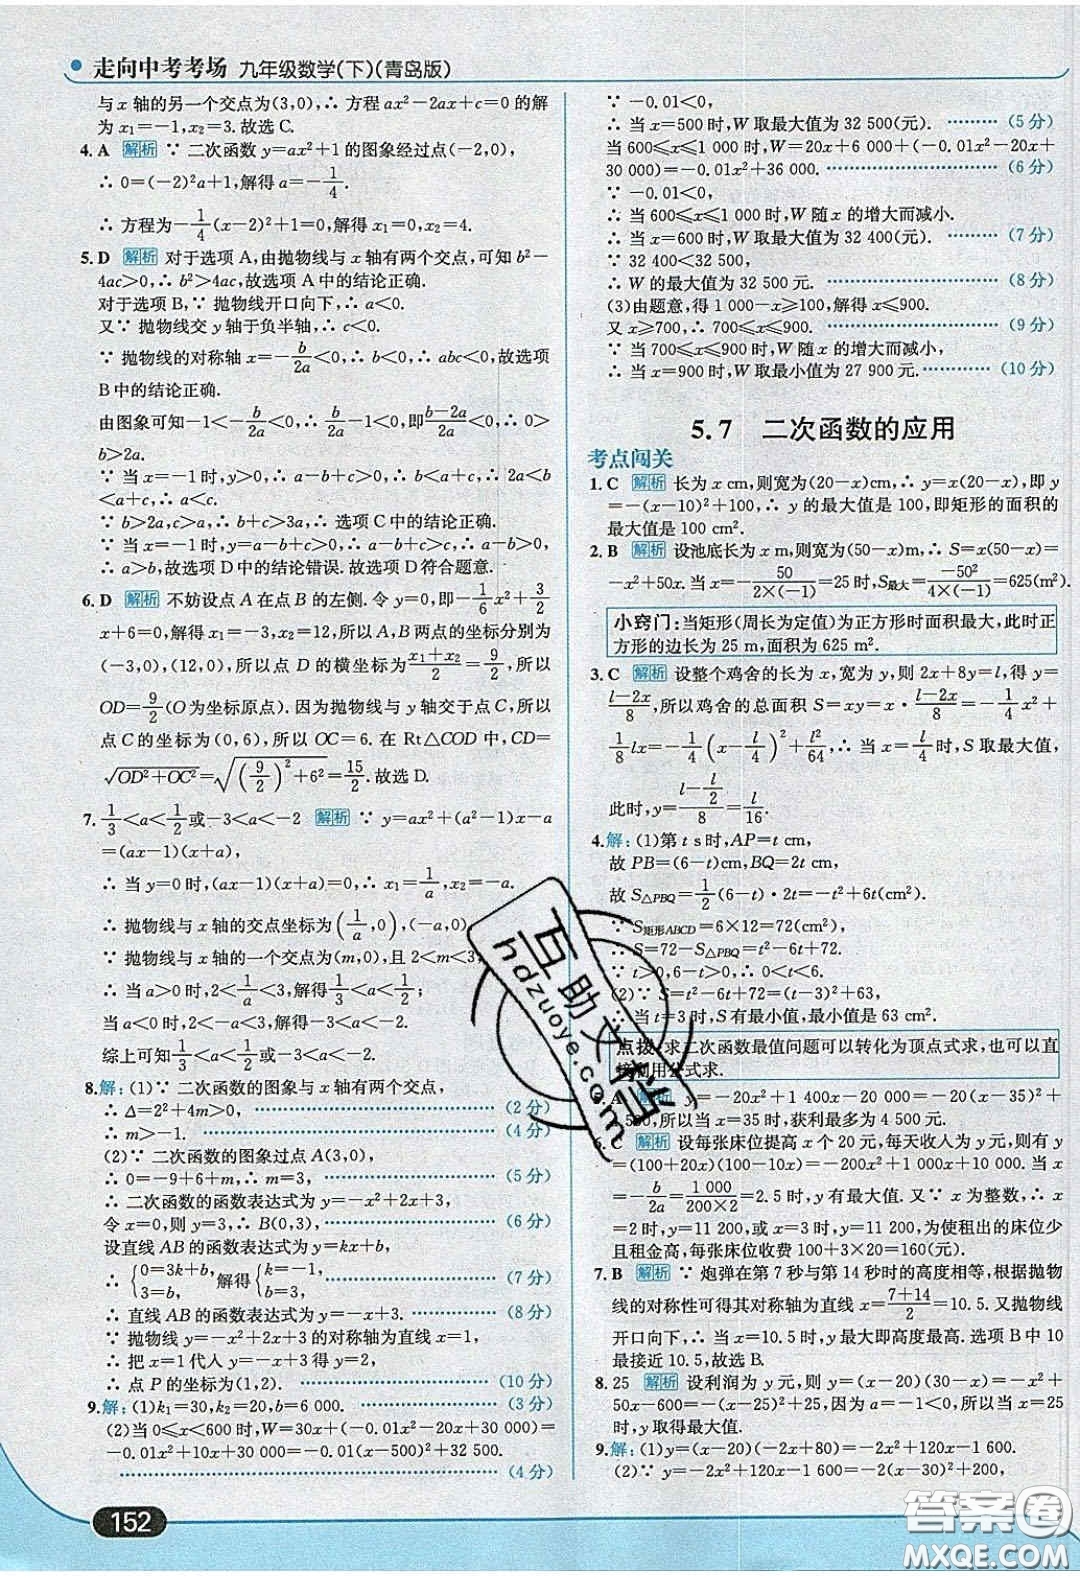 走向中考考场 九年级数学(下)(青岛版)
与x轴的另一个交点为(3,0),∴ 方程ax²-2ax+c=0的解
为x₁=-1,x₂=3.故选C.
4.A 解析 ∵ 二次函数y=ax²+1的图象经过点(-2,0),
∴ 0=(-2)²a+1,解得a=-1/4.
∴ 方程为-1/4(x-2)²+1=0,解得x₁=0,x₂=4.
5.D 解析 对于选项A,由抛物线与x轴有两个交点,可知b²-
4ac>0,∴ b²>4ac,故选项A中的结论正确.
对于选项B,∵ 抛物线开口向下,∴ a<0.
又∵ 抛物线交y轴于负半轴,∴ c<0.
∵ 抛物线的对称轴x=-b/2a<0,∴ b<0,∴ abc<0,故选项
B中的结论正确.
由图象可知-1<-b/2a<0,∴ b/2a-1<0,即(b-2a)/2a<0,∴ 0>
b>2a.
∵ 当x=-1时,y<0,∴ a-b+c<0,∴ a-2a+c<a-b
<a+c,∴ a<c.
∵ b>2a,c>a,∴ b+c>3a,∴ 选项C中的结论正确.
∵ 当x=-1时,y>0,∴ a-b+c>0,∴ a-b>-c>0,
∴ a>b,故选项D中的结论错误.故选项D符合题意.
6.D 解析 不妨设点A在点B的左侧.令y=0,即-1/6x²+3/2
x+6=0,解得x₁=-3,x₂=12,所以A,B两点的坐标分别为
(-3,0),(12,0),所以点D的横坐标为(x₁+x₂)/2=9/2,所以
OD=9/2(O为坐标原点).因为抛物线与y轴交于点C,所以
点C的坐标为(0,6),所以OC=6.在Rt△COD中,CD=
√(OD²+OC²)=√((9/2)²+6²)=15/2.故选D.
7.1/3<a<1/2或-3<a<-2 解析 ∵ y=ax²+(a²-1)x-a
=(ax-1)(x+a),
∴ 当y=0时,(ax-1)(x+a)=0,∴ x₁=1/a,x₂=-a.
∴ 抛物线与x轴的交点坐标为(1/a,0),(-a,0).
∵ 抛物线与x轴的一个交点为(m,0),且2<m<3,
∴ 当a>0时,2<1/a<3,解得1/3<a<1/2;
当a<0时,2<-a<3,解得-3<a<-2.
综上可知1/3<a<1/2或-3<a<-2.
8.解:(1)∵ 二次函数的图象与x轴有两个交点,
∴ Δ=2²+4m>0, (2分)
∴ m>-1. (4分)
(2)∵ 二次函数的图象过点A(3,0),
∴ 0=-9+6+m,∴ m=3, (5分)
∴ 二次函数的函数表达式为y=-x²+2x+3,
令x=0,则y=3,∴ B(0,3), (6分)
设直线AB的函数表达式为y=kx+b,
∴ {0=3k+b, 3=b, 解得{k=-1, b=3, (7分)
∴ 直线AB的函数表达式为y=-x+3. (8分)
∵ 抛物线y=-x²+2x+3的对称轴为直线x=1,
∴ 把x=1代入y=-x+3得y=2,
∴ 点P的坐标为(1,2). (10分)
9.解:(1)k₁=30,k₂=20,b=6 000. (3分)
(2)当0≤x<600时,W=30x+(-0.01x²-20x+30 000)=
-0.01x²+10x+30 000=-0.01(x-500)²+32 500,
(4分)
∵ -0.01<0,
∴ 当x=500时,W取最大值为32 500(元). (5分)
当600≤x≤1 000时,W=20x+6 000+(-0.01x²-20x+
30 000)=-0.01x²+36 000. (6分)
∵ -0.01<0,
∴ 当600≤x≤1 000时,W随x的增大而减小.
∴ 当x=600时,W取最大值为32 400(元). (7分)
∵ 32 400<32 500,
∴ W的最大值为32 500元. (8分)
(3)由题意,得1 000-x≥100,解得x≤900.
又x≥700,∴ 700≤x≤900. (9分)
∵ 当700≤x≤900时,W随x的增大而减小,
∴ 当x=900时,W取最小值为27 900元. (10分)
5.7 二次函数的应用
考点闯关
1.C 解析 长为x cm,则宽为(20-x)cm,∴ y=x(20-x),即y
=-(x-10)²+100,∴ y的最大值是100,即矩形的面积的
最大值是100 cm².
2.B 解析 设池底长为x m,则宽为(50-x)m,∴ S=x(50-x)=
-x²+50x.当x=-50/(2×(-1))=25时,S最大=-50²/(4×(-1))=625(m²).
小窍门:当矩形(周长为定值)为正方形时面积最大,此时正
方形的边长为25 m,面积为625 m².
3.C 解析 设整个鸡舍的长为x,宽为y,则2x+8y=l,得y=
(l-2x)/8,所以鸡舍的总面积S=xy=x·(l-2x)/8=-1/4x²+
1/8lx=-1/4(x-l/4)²+l²/64,∴ 当x=l/4时,S取最大值,
此时,y=(l-l/2)/8=l/16.
4.解:(1)第t s时,AP=t cm,
故PB=(6-t)cm,BQ=2t cm,
故S△PBQ=1/2(6-t)·2t=-t²+6t(cm²).
∵ S矩形ABCD=6×12=72(cm²).
∴ S=72-S△PBQ=t²-6t+72.
∵ t>0,6-t>0,∴ 0<t<6.
(2)∵ S=t²-6t+72=(t-3)²+63,
∴ 当t=3时,S有最小值,最小值是63 cm².
点拨:求二次函数最值问题可以转化为顶点式求,也可以直
接利用公式求.
5.A 解析 y=-20x²+1 400x-20 000=-20(x-35)²+
4 500,所以当x=35时,获利最多为4 500元.
6.C 解析 设每张床位提高x个20元,每天收入为y元,则有y
=(100+20x)(100-10x)=-200x²+1 000x+10 000.当x
=-b/2a=1 000/(200×2)=2.5时,y有最大值.又∵ x为整数,∴ 当x=
2时,y=11 200,或x=3时,y=11 200,为使租出的床位少
且租金高,每张床位收费100+3×20=160(元).
7.B 解析 ∵ 炮弹在第7秒与第14秒时的高度相等,根据抛物
线的对称性可得其对称轴为直线x=(7+14)/2=10.5.又抛物线
开口向下,∴ 当x=10.5时,y最大即高度最高.选项B中10
最接近10.5,故选B.
8.25 解析 设利润为y元,则y=(x-20)(30-x)=-x²+
50x-600=-(x-25)²+25,因为a=-1<0,所以当x=25
时,y取得最大值.
9.解:(1)y=(x-20)(-2x+80)=-2x²+120x-1 600.
(2)∵ y=-2x²+120x-1 600=-2(x-30)²+200,
152
互助文档
hdzuoye.com
答案圈
MXQE.COM